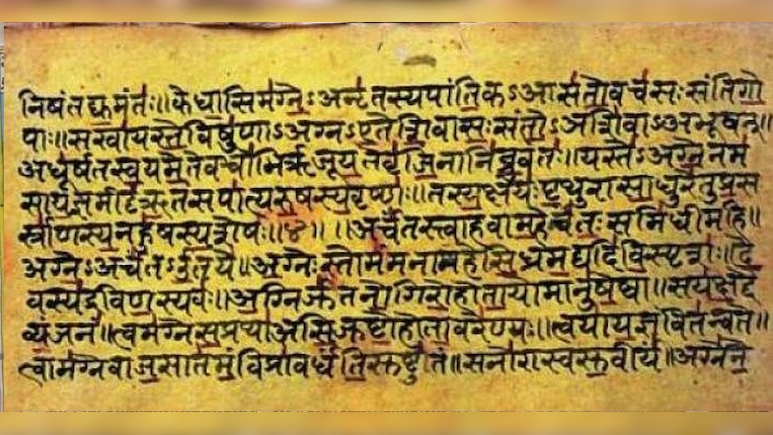 निषंतद्युमंतः॥केधासिमग्नेऽअनृतस्यपांतिकऽआसतोवचसःसंतिगो
पाः॥सखायस्तेविषुणाऽअग्नऽएतेशिवासःसंतोऽअशिवाऽअभूवन्॥
अधूर्षतस्वयमेतेवचोभिर्ऋजूयतेवृजिनानिब्रुवंतः॥यस्तेऽअग्नेनम
सायज्ञमीट्टऋतंसपात्यरुषस्यवृष्णः॥तस्यक्षयःपृथुरासाधुरेतुप्रस
र्स्राणस्यनहुषस्यशेषः॥४॥ ॥अर्चंतस्त्वाहवामहेर्चंतःसमिधीमहि॥
अग्नेऽअर्चंतऽऊतये॥अग्नेःस्तोमंमनामहेसिध्रमद्यदिविस्पृशः॥दे
वस्यद्रविणस्यवः॥अग्निर्जुषतनोगिरोहोतायोमानुषेष्वा॥सयक्षद्दै
व्यंजनं॥त्वमग्नेसप्रथाऽअसिजुष्टोहोतावरेण्यः॥त्वयायज्ञंवितन्वते॥
त्वामग्नेवाजसातमंविप्रावर्धंतिसुष्टुतं॥सनोरास्वसुवीर्यं॥अग्नेने